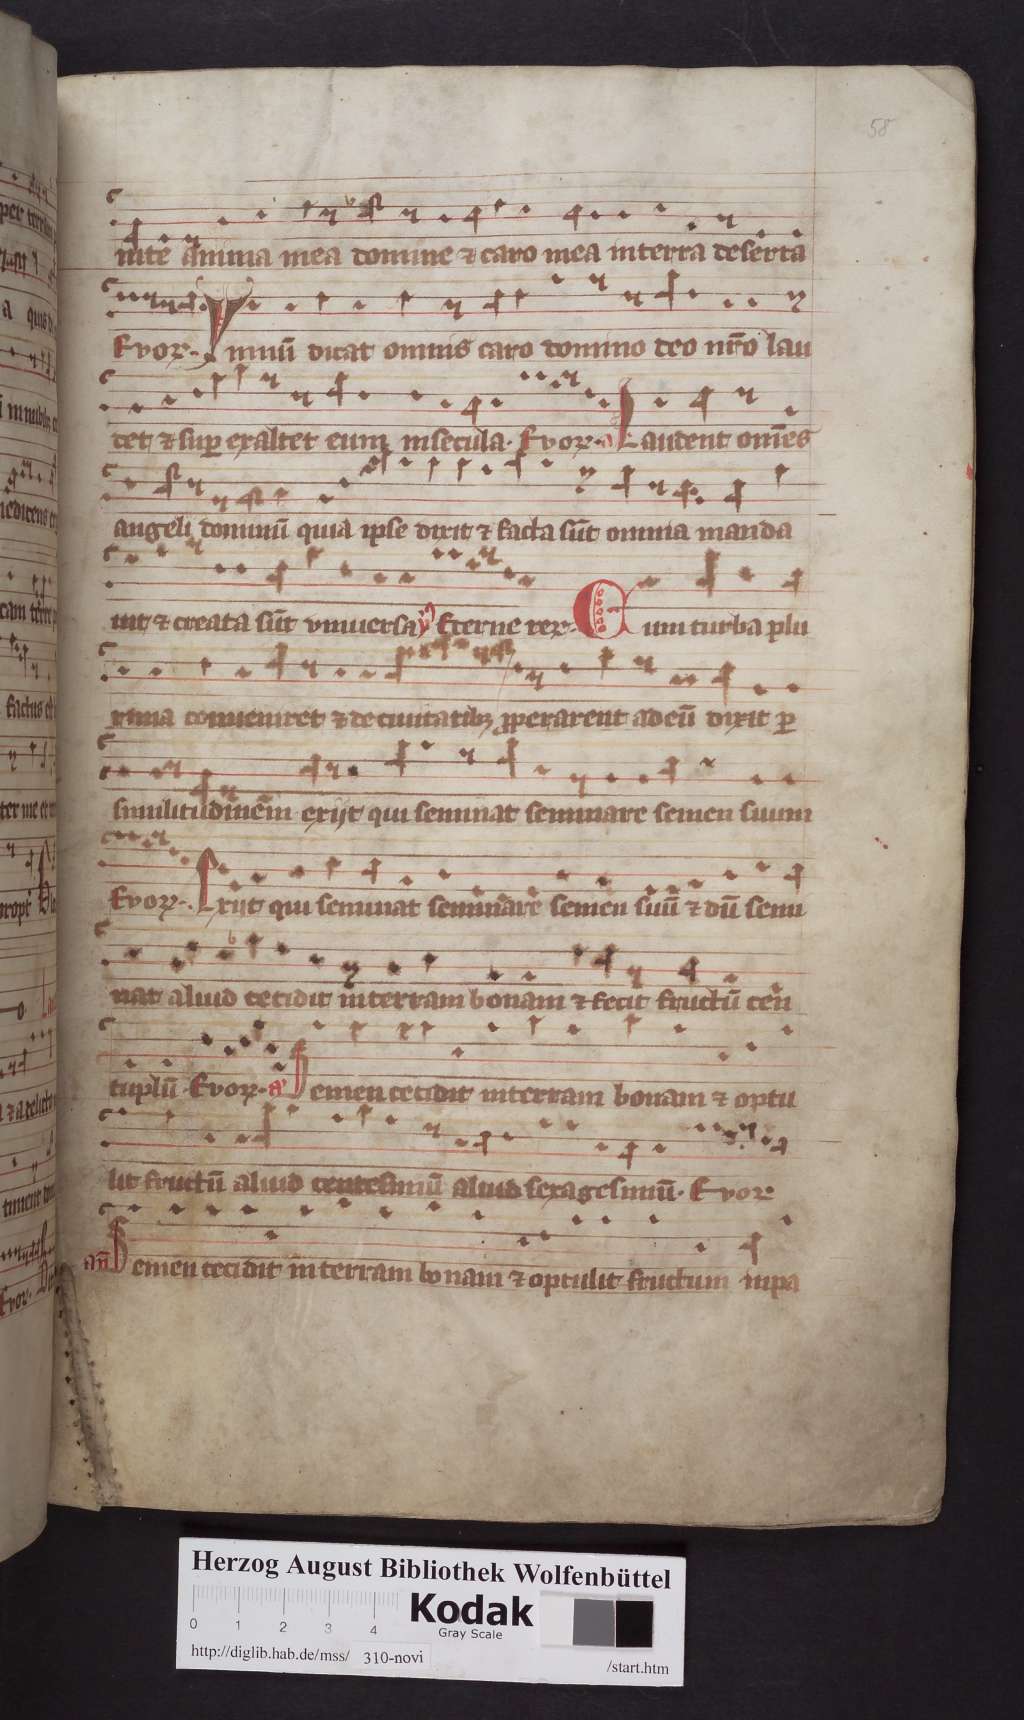 58
inte anima mea domine ⁊ caro mea in terra deserta
Evor. Ymnū dicat omnis caro domino deo nr̄o lau
det ⁊ suꝑ exaltet eum in secula. Evor. a Laudent om̄es
angeli dominū quia ipse dixit ⁊ facta sūt omnia manda
uit ⁊ creata sūt vniuersa Eterne rex. Cum turba plu
rima conueniret ⁊ de ciuitatibꝫ ꝓperarent ad eū dixit ꝑ
similitudinem exijt qui seminat seminare semen suum
Evor. Exijt qui seminat seminare semen suū ⁊ dū semi
nat aliud cecidit in terram bonam ⁊ fecit fructū cen
tuplū. Evor. a Semen cecidit in terram bonam ⁊ optu
lit fructū aliud centesimū aliud sexagesimū. Evor
an̄ Semen cecidit in terram bonam ⁊ optulit fructum in pa
Herzog August Bibliothek Wolfenbüttel
0 1 2 3 4
Kodak
Gray Scale
http://diglib.hab.de/mss/ 310-novi /start.htm